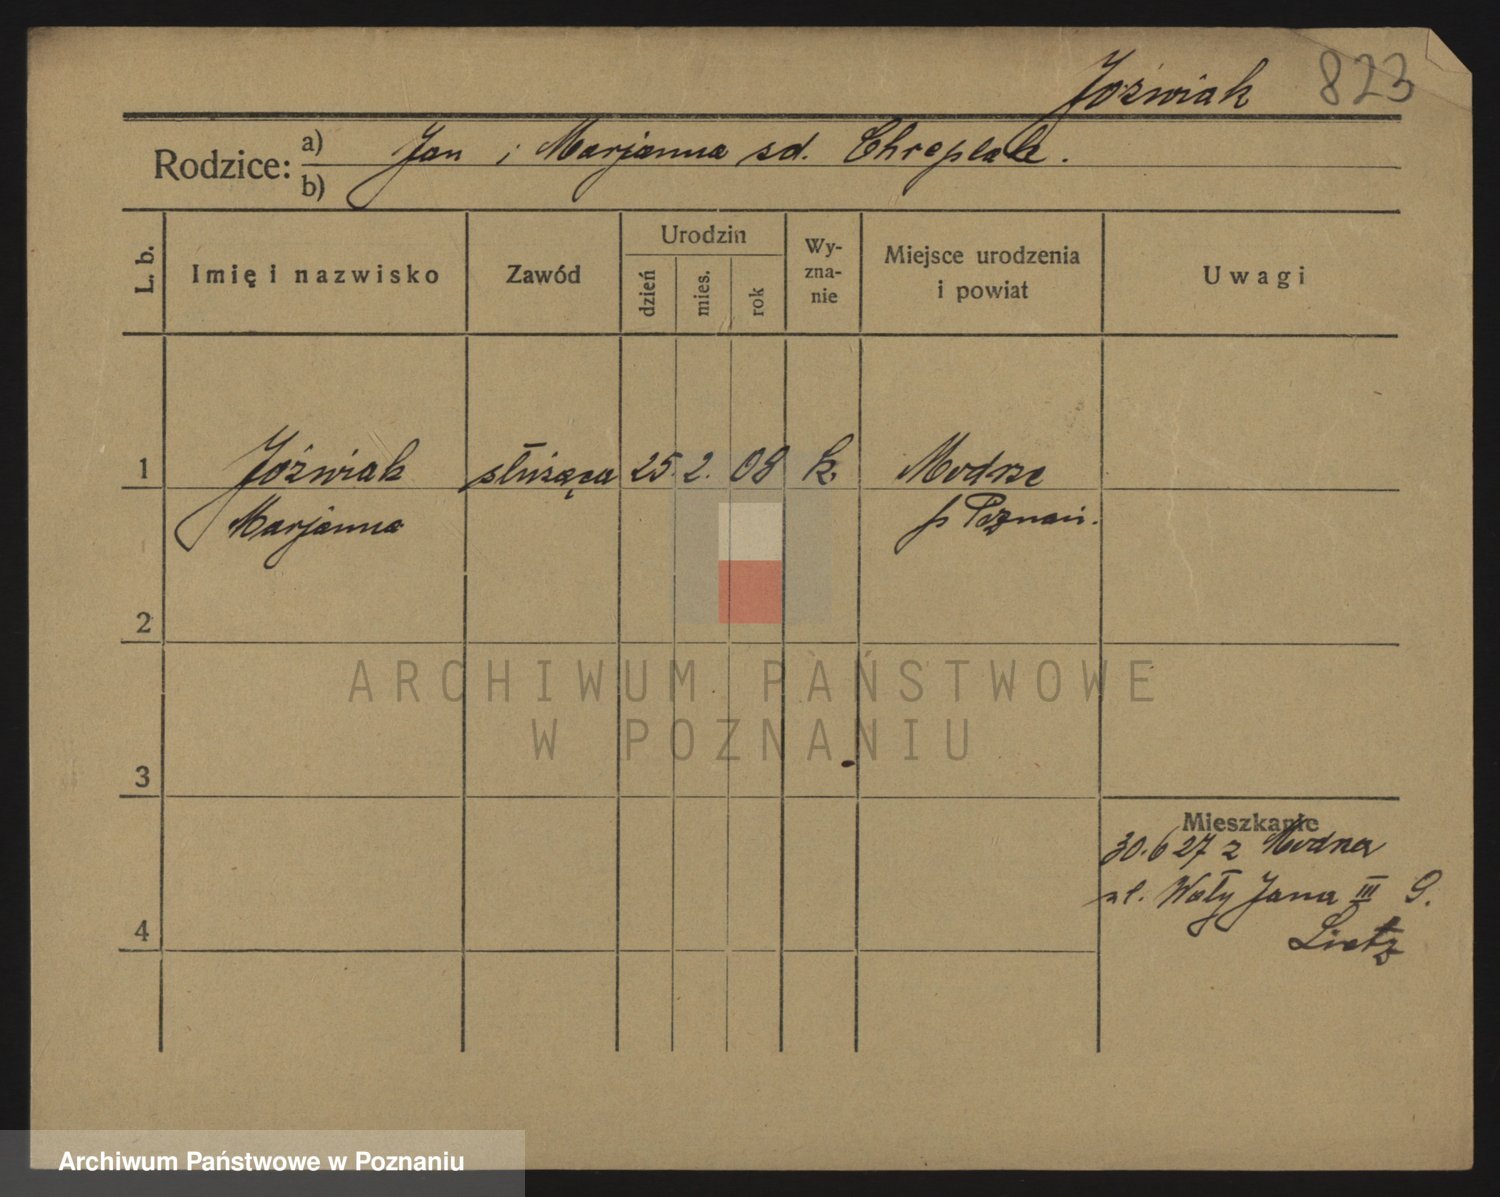 Jóźwiak 823
Rodzice: a) Jan i Marjanna zd. Chreptak.
b)
L. b. Imię i nazwisko Zawód Urodzin dzień mies. rok Wy-zna-nie Miejsce urodzenia i powiat Uwagi
1 Jóźwiak służąca 25. 2. 08 k. Modrze
Marjanna p Poznań.
2
ARCHIWUM PAŃSTWOWE
W POZNANIU
3
Mieszkanie
30.6 27 z Modrza
ul. Wały Jana III 9.
4
Lietz
Archiwum Państwowe w Poznaniu